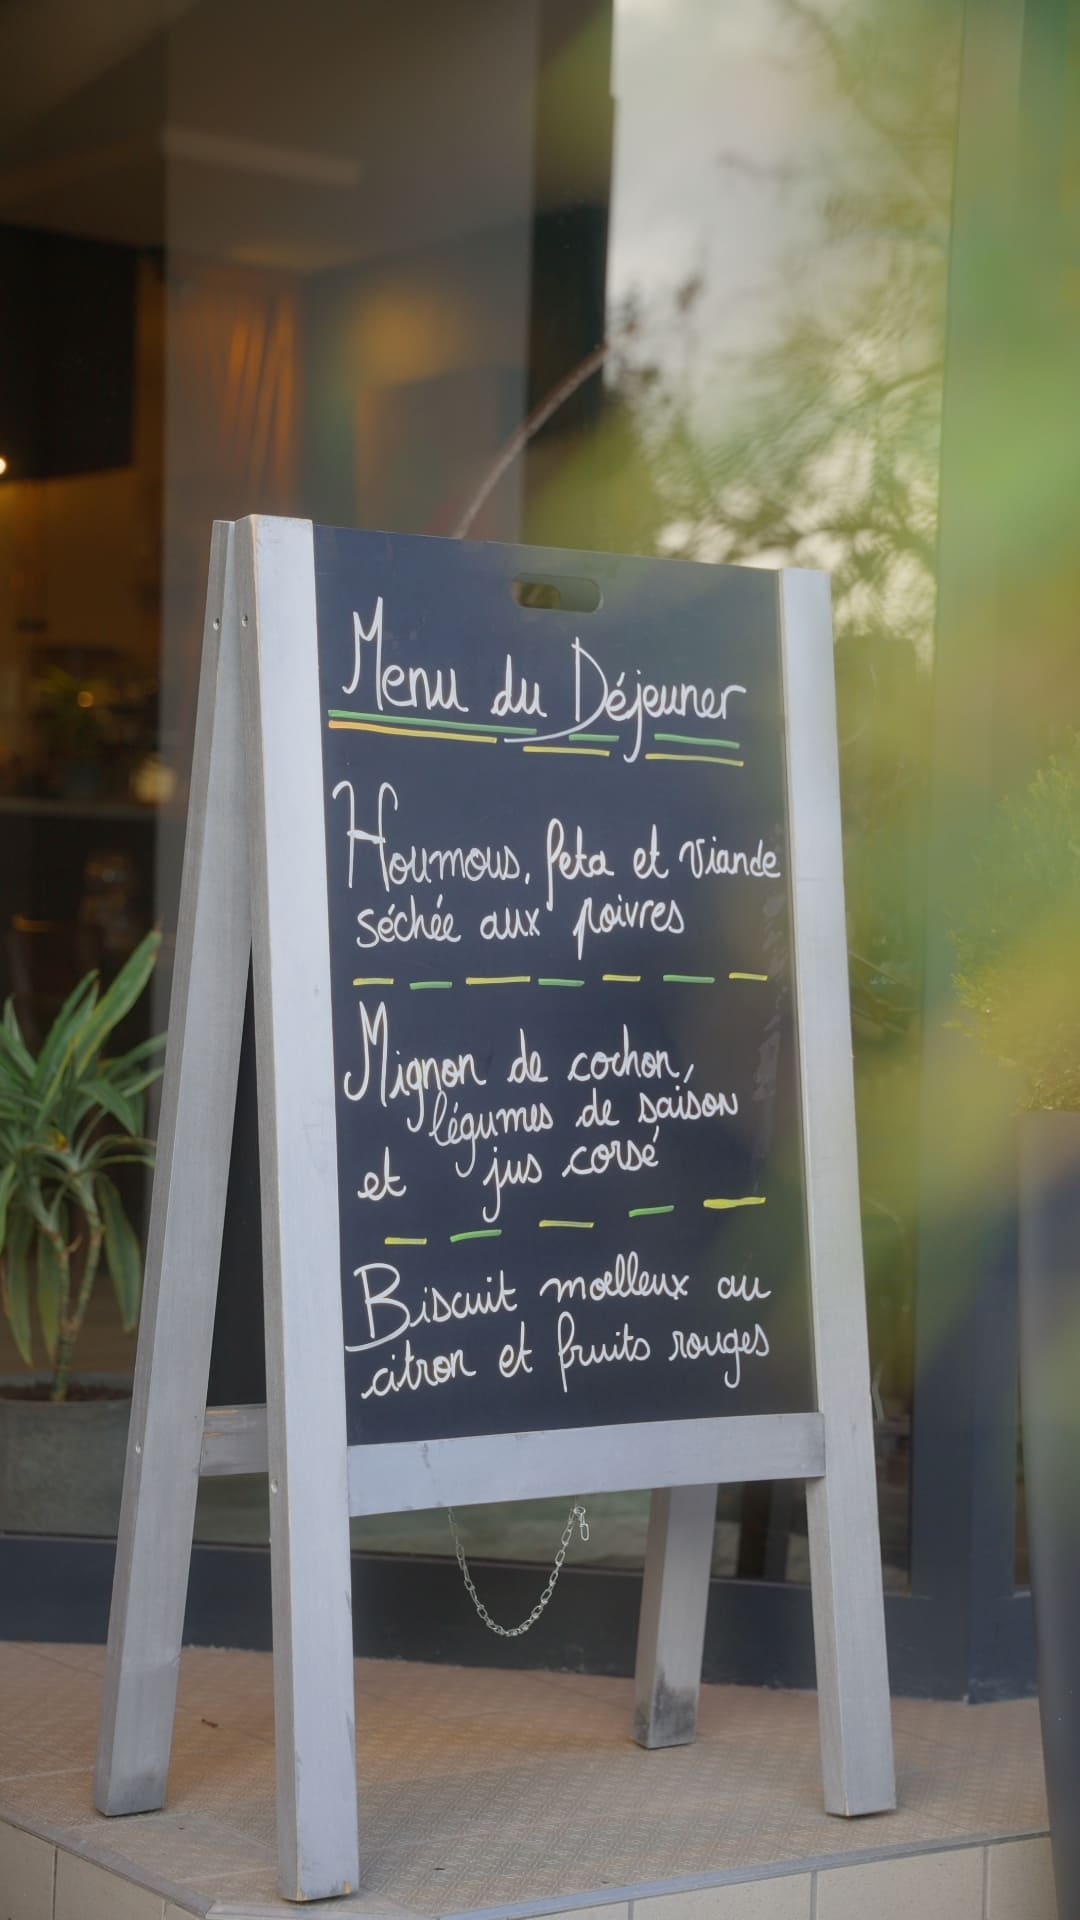 Menu du Déjeuner
Houmous, feta et viande
séchée aux poivres
Mignon de cochon,
légumes de saison
et jus corsé
Biscuit moelleux au
citron et fruits rouges